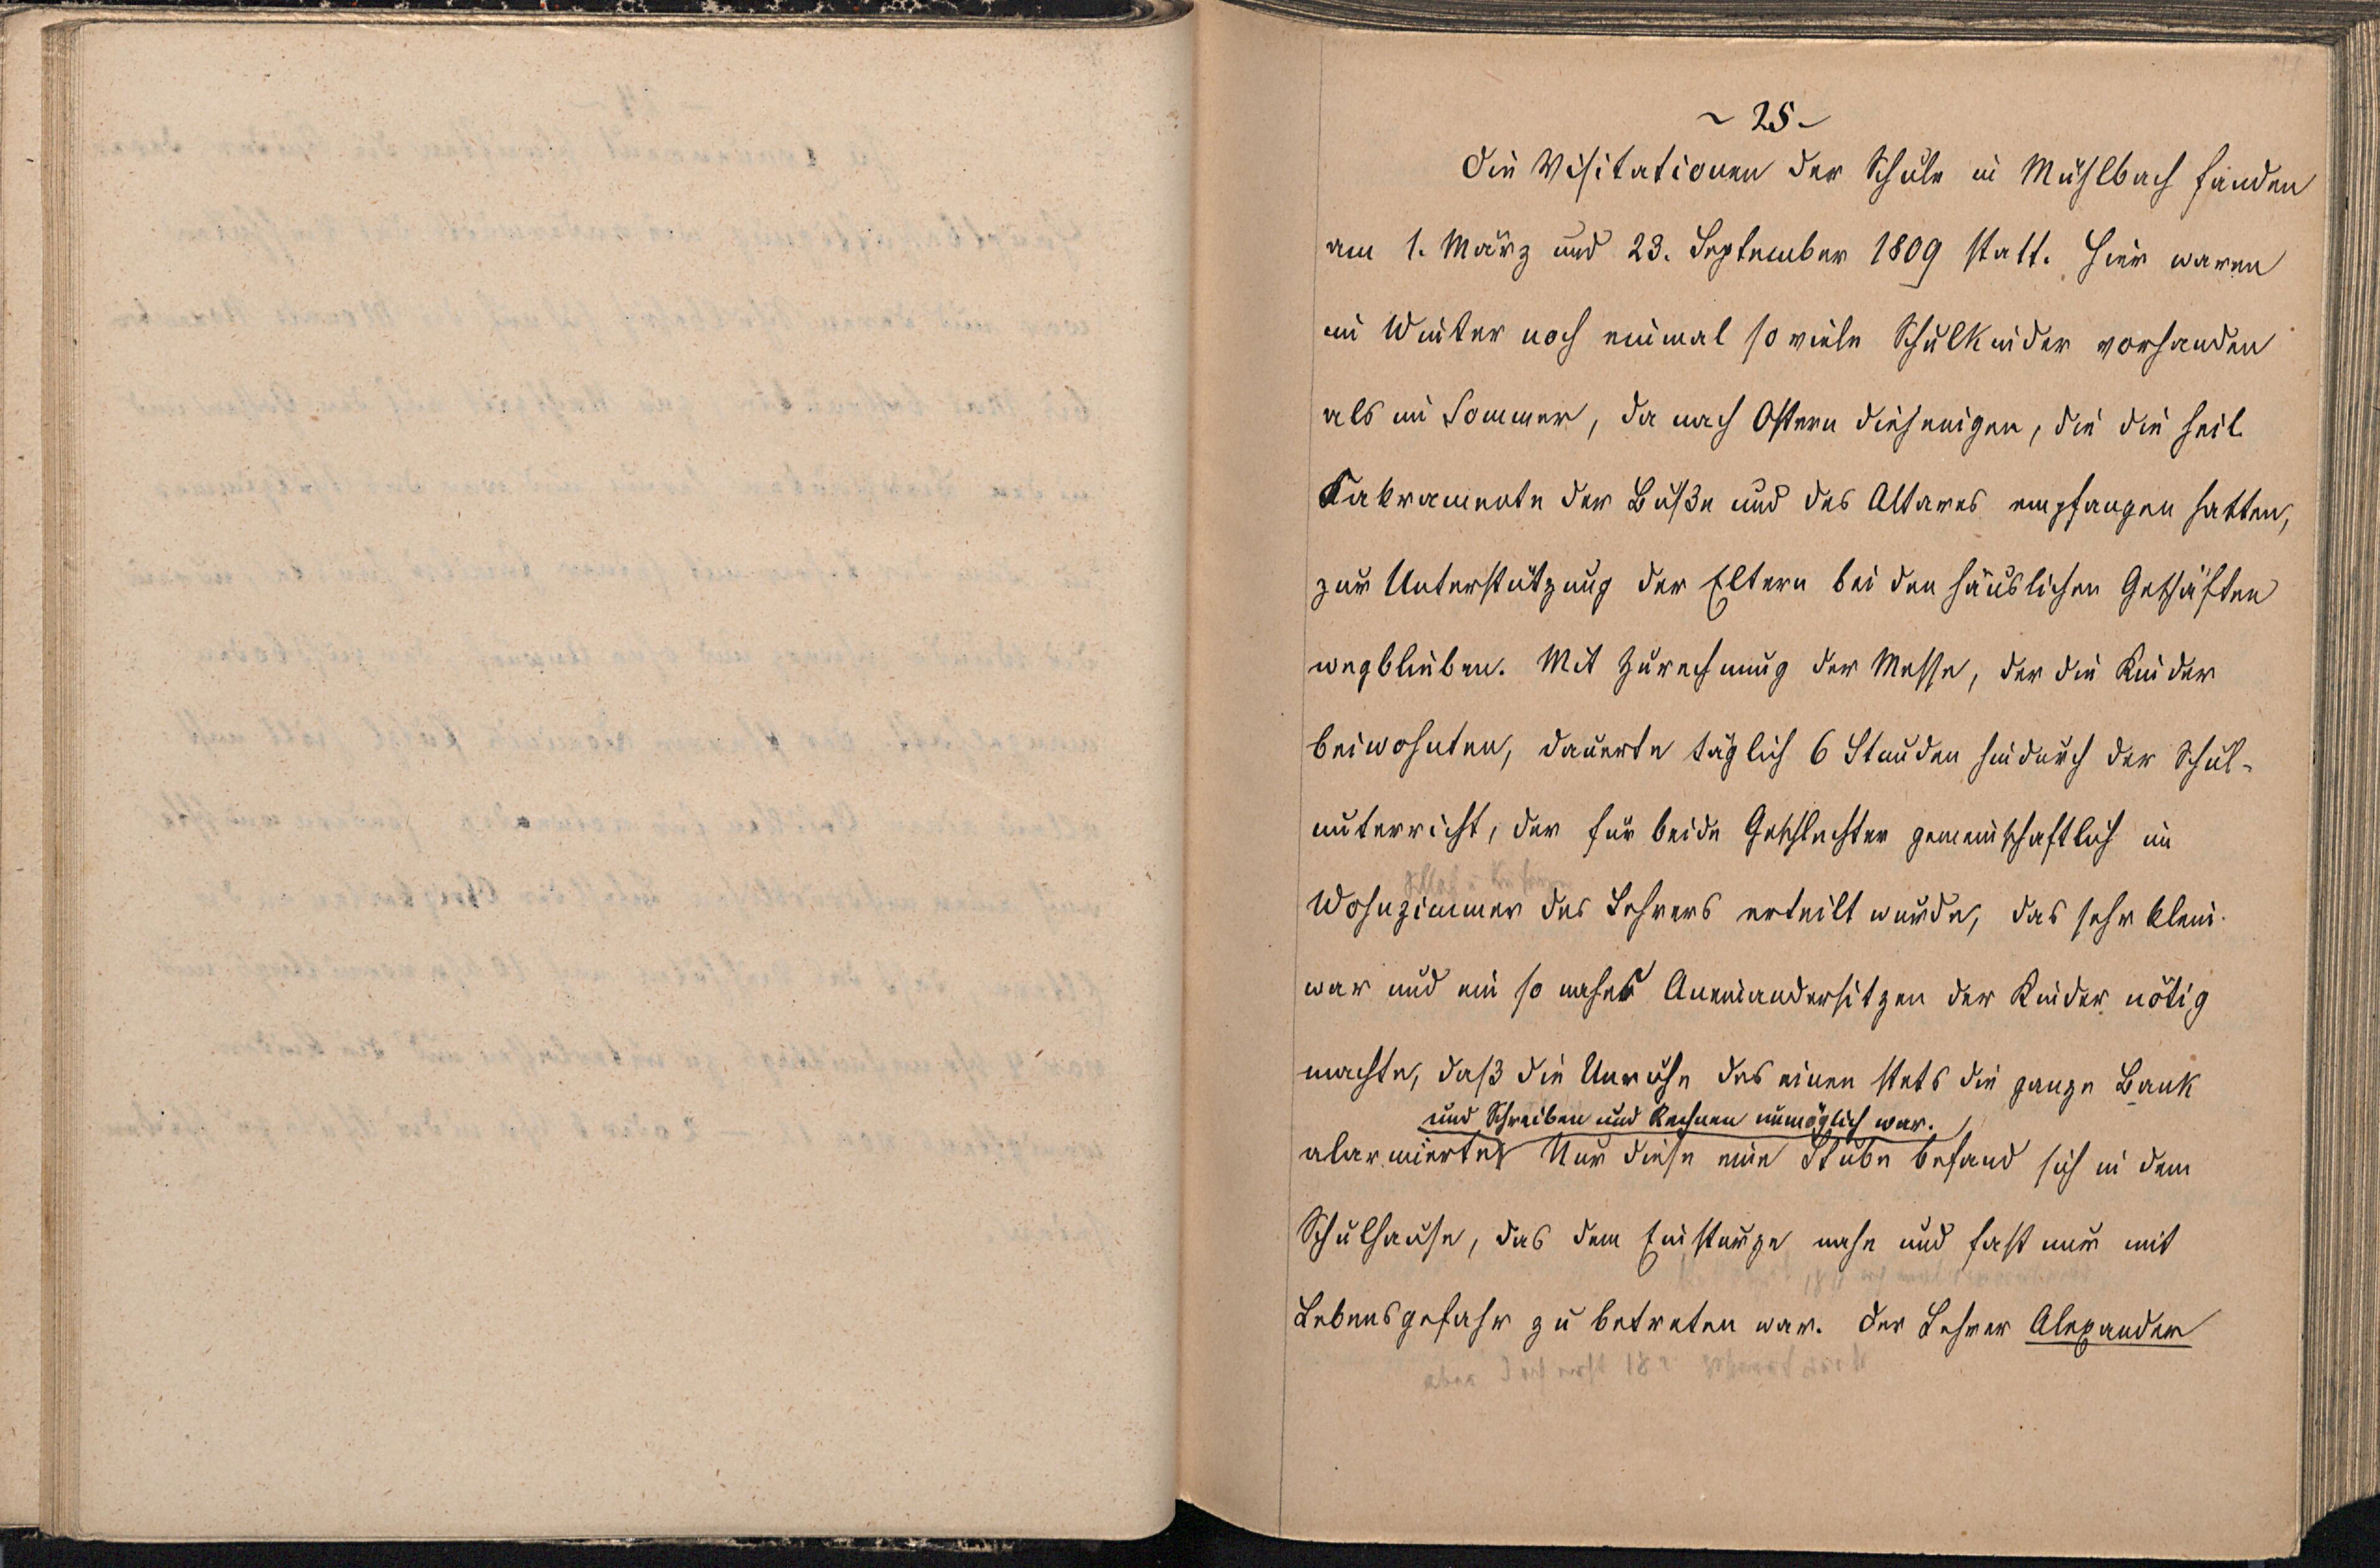 ~ 25 -
Die Visitationen der Schule in Mühlbach fanden
am 1. März und 23. September 1809 statt. Hier waren
im Winter noch einmal so viele Schulkinder vorhanden
als im Sommer, da nach Ostern diejenigen, die die heil.
Sakramente der Buße und des Altares empfangen hatten,
zur Unterstützung der Eltern bei den häuslichen Geschäften
wegblieben. Mit Zurechnung der Messe, der die Kinder
beiwohnten, dauerte täglich 6 Stunden hindurch der Schul-
unterricht, der für beide Geschlechter gemeinschaftlich im
Wohnzimmer des Lehrers erteilt wurde, das sehr klein
war und ein so nahes Aneinandersitzen der Kinder nötig
machte, daß die Unruhe des einen stets die ganze Bank
und Schreiben und Rechnen unmöglich war.
alarmierte Nur diese eine Stube befand sich in dem
Schulhause, das dem Einsturze nahe und fast nur mit
Lebensgefahr zu betreten war. Der Lehrer Alexander